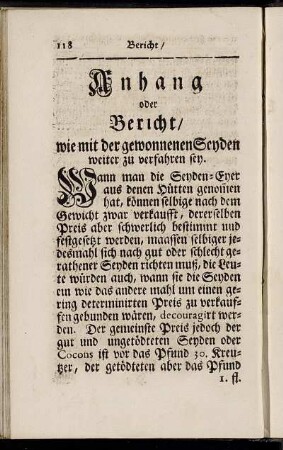 118 Bericht/
Anhang
oder
Bericht/
wie mit der gewonnenen Seyden
weiter zu verfahren sey.
Wann man die Seyden-Eyer
aus denen Hütten genom̃en
hat, können selbige nach dem
Gewicht zwar verkaufft, dererselben
Preis aber schwerlich bestimmt und
festgesetzt werden, maassen selbiger je-
desmahl sich nach gut oder schlecht ge-
rathener Seyden richten muß, die Leu-
te würden auch, wann sie die Seyden
ein wie das andere mahl um einen ge-
ring determinirten Preiß zu verkauf-
fen gebunden wären, decouragirt wer-
den. Der gemeinste Preis jedoch der
gut und ungetödteten Seyden oder
Cocons ist vor das Pfund 30. Kreu-
tzer, der getödteten aber das Pfund
1. fl.